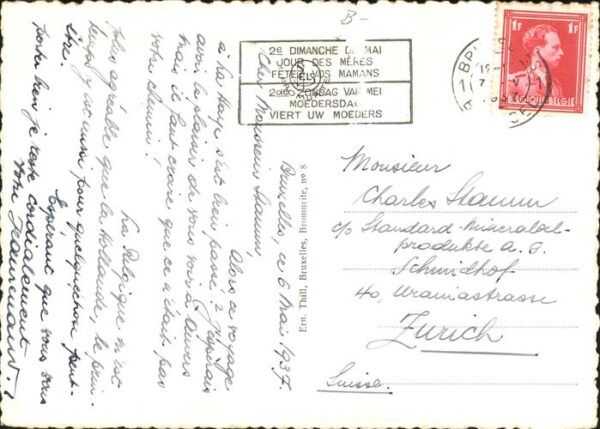 B-
2e DIMANCHE DE MAI
JOUR DES MÈRES
FÊTEZ VOS MAMANS
2de ZONDAG VAN MEI
MOEDERSDAG
VIERT UW MOEDERS
1F
1F
BELGIQUE-BELGIE
Bruxelles, ce 6 Mai 1937.
Cher Monsieur Stamm,
Alors ce voyage
à La Haye s'est bien passé? J'espérais
avoir le plaisir de vous voir à Anvers
mais il faut croire que ce n'était pas
votre chemin!
La Belgique n'est
plus agréable que la Hollande, le prin-
temps y est aussi pour quelque chose peut-
être.
Espérant que vous vous
portez bien je reste cordialement
votre
Ern. Thill, Bruxelles, Bromurite, no 8
Monsieur
Charles Stamm
c/o Standard-Mineraloel-
produkte A.G.
Schmidhof
40, Uraniastrasse
Zurich
Suisse.